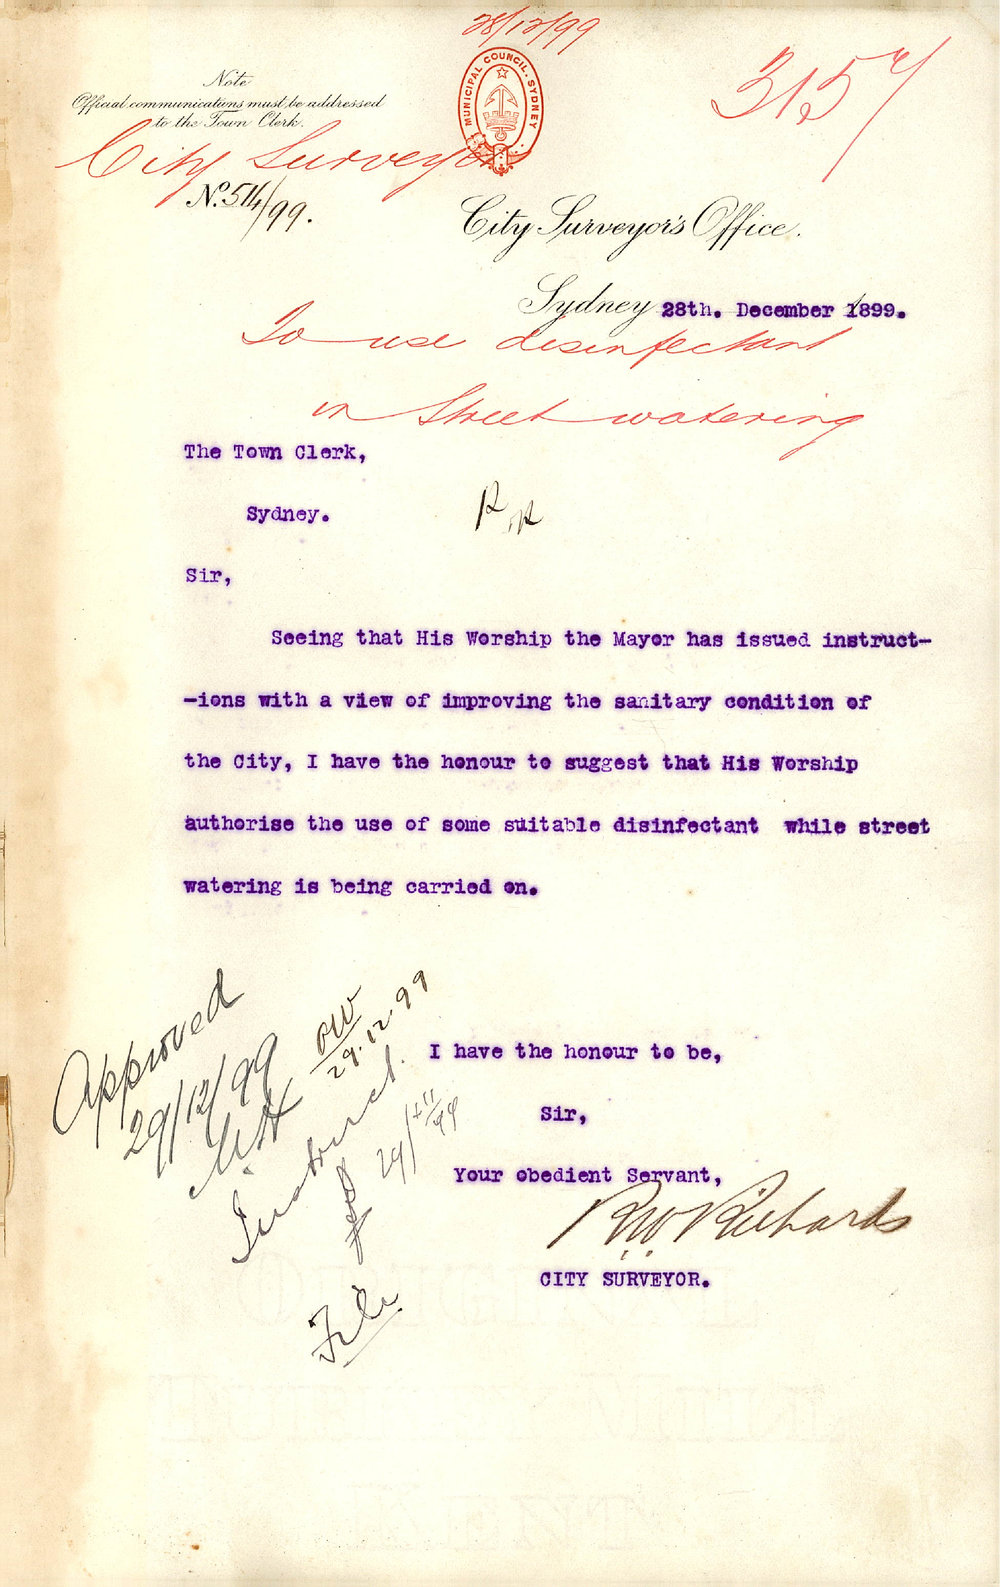 28/12/99
3157
MUNICIPAL COUNCIL. SYDNEY
Note
Official communications must be addressed
to the Town Clerk.
City Surveyor
No. 514/99.
City Surveyor's Office.
Sydney 28th. December 1899.
To use disinfectant
in Street watering
The Town Clerk,
Sydney.
Sir,
Seeing that His Worship the Mayor has issued instruct-
-ions with a view of improving the sanitary condition of
the City, I have the honour to suggest that His Worship
authorise the use of some suitable disinfectant while street
watering is being carried on.
Approved
29/12/99
OW
29.12.99
Instruct.
I have the honour to be,
Sir,
Your obedient Servant,
RW Richards
CITY SURVEYOR.
File